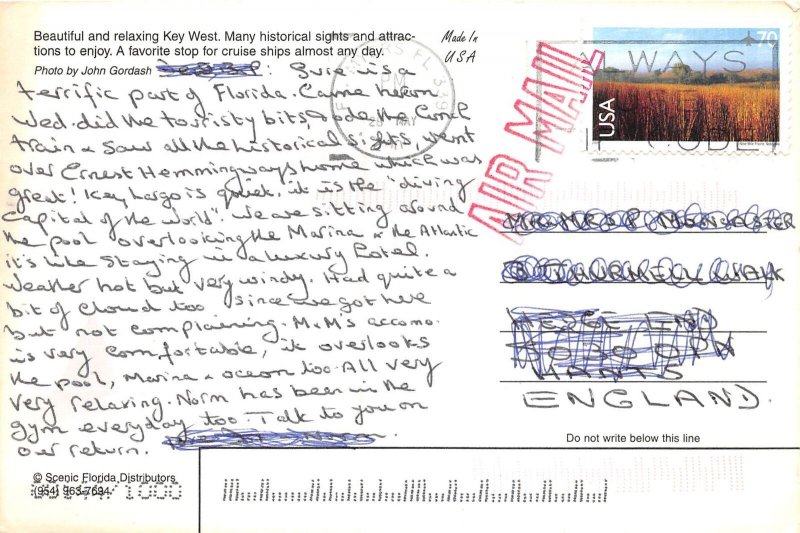 Beautiful and relaxing Key West. Many historical sights and attrac-
tions to enjoy. A favorite stop for cruise ships almost any day.
Photo by John Gordash
Made In
USA
: Sure is a
terrific part of Florida. Came here on
Wed. did the touristy bits, rode the Conch
train & saw all the historical sights, went
over Ernest Hemmingways home which was
great! Key Largo is quiet. it is the "diving
Capital of the world". We are sitting around
the pool overlooking the Marina & the Atlantic
it's like staying in a luxury hotel.
Weather hot but very windy. Had quite a
bit of cloud too since we got here
but not complaining. M&M's accomo.
is very comfortable, it overlooks
the pool, Marina & ocean too. All very
very relaxing. Norm has been in the
gym everyday too. Talk to you on
our return.
AIR MAIL
70
USA
FL 339
PM
MAY
ALWAYS
HANTS
ENGLAND
Do not write below this line
© Scenic Florida Distributors
(954) 963-7694